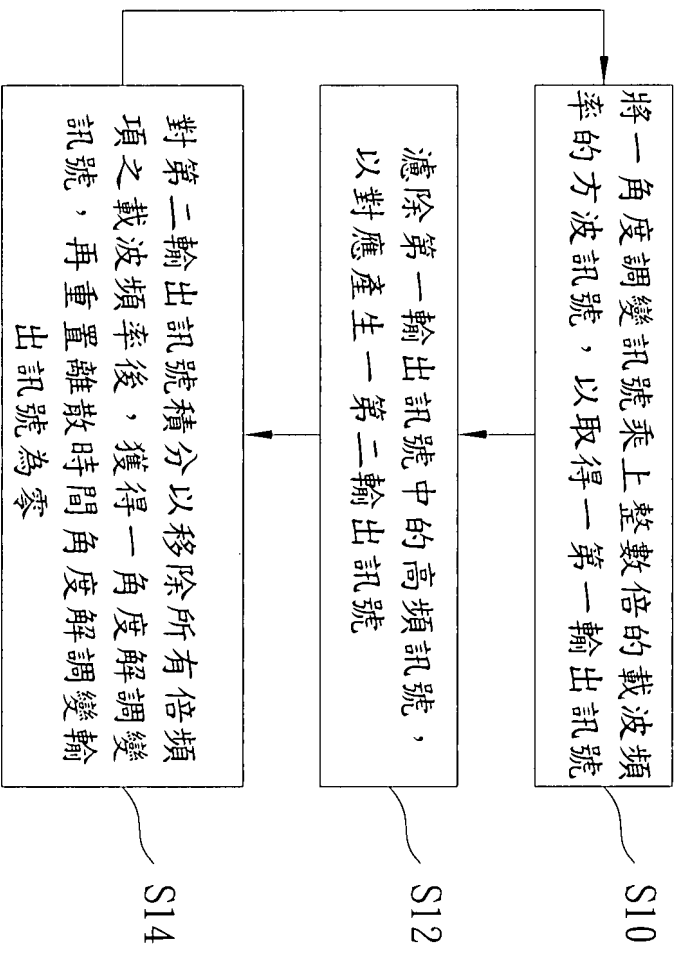 將一角度調變訊號乘上整數倍的載波頻
率的方波訊號，以取得一第一輸出訊號
S10
濾除第一輸出訊號中的高頻訊號，
以對應產生一第二輸出訊號
S12
對第二輸出訊號積分以移除所有倍頻
項之載波頻率後，獲得一角度解調變
訊號，再重置離散時間角度解調變輸
出訊號為零
S14